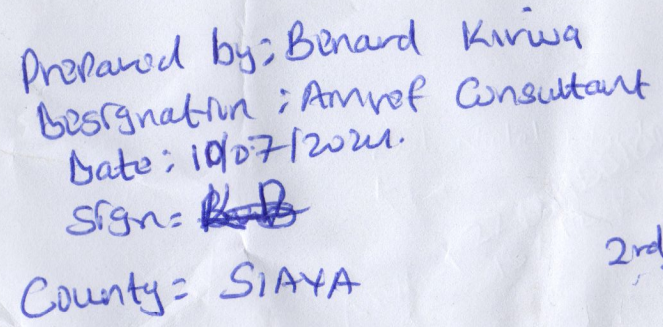 Prepared by: Benard Kirwa
Designation: Amref Consultant
Date: 10/07/2024.
Sign=
County= SIAYA
2rd